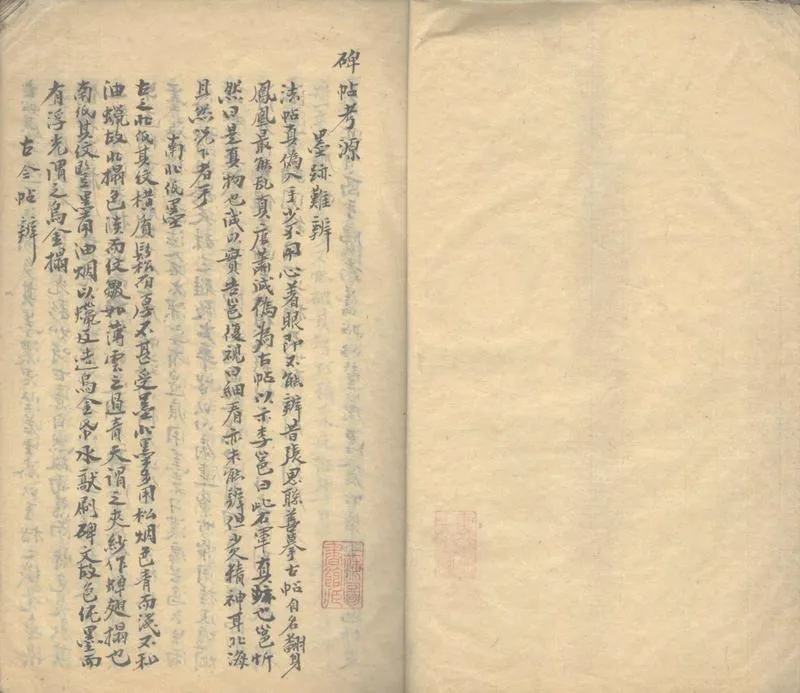 碑帖考源
墨跡難辨
法帖真偽入手少不用心著眼即不能辨昔張思聰善摹古帖自名翻身
鳳凰最能亂真唐蕭誠偽為古帖以示李邕曰此右軍真跡也邕忻
然曰是真物也誠以實告邕復視曰細看亦未能辨但少精神耳北海
且然況下者乎
南北紙墨
古之北紙其紋橫質鬆而厚不甚受墨北墨多用松烟色青而淺不和
油蠟故北搨色淡而紋皺如薄雲之過青天謂之夾紗作蟬翅搨也
南紙其紋豎墨用油烟以蠟及造烏金帋水敲刷碑文故色純墨而
有浮光謂之烏金搨
古今帖辨